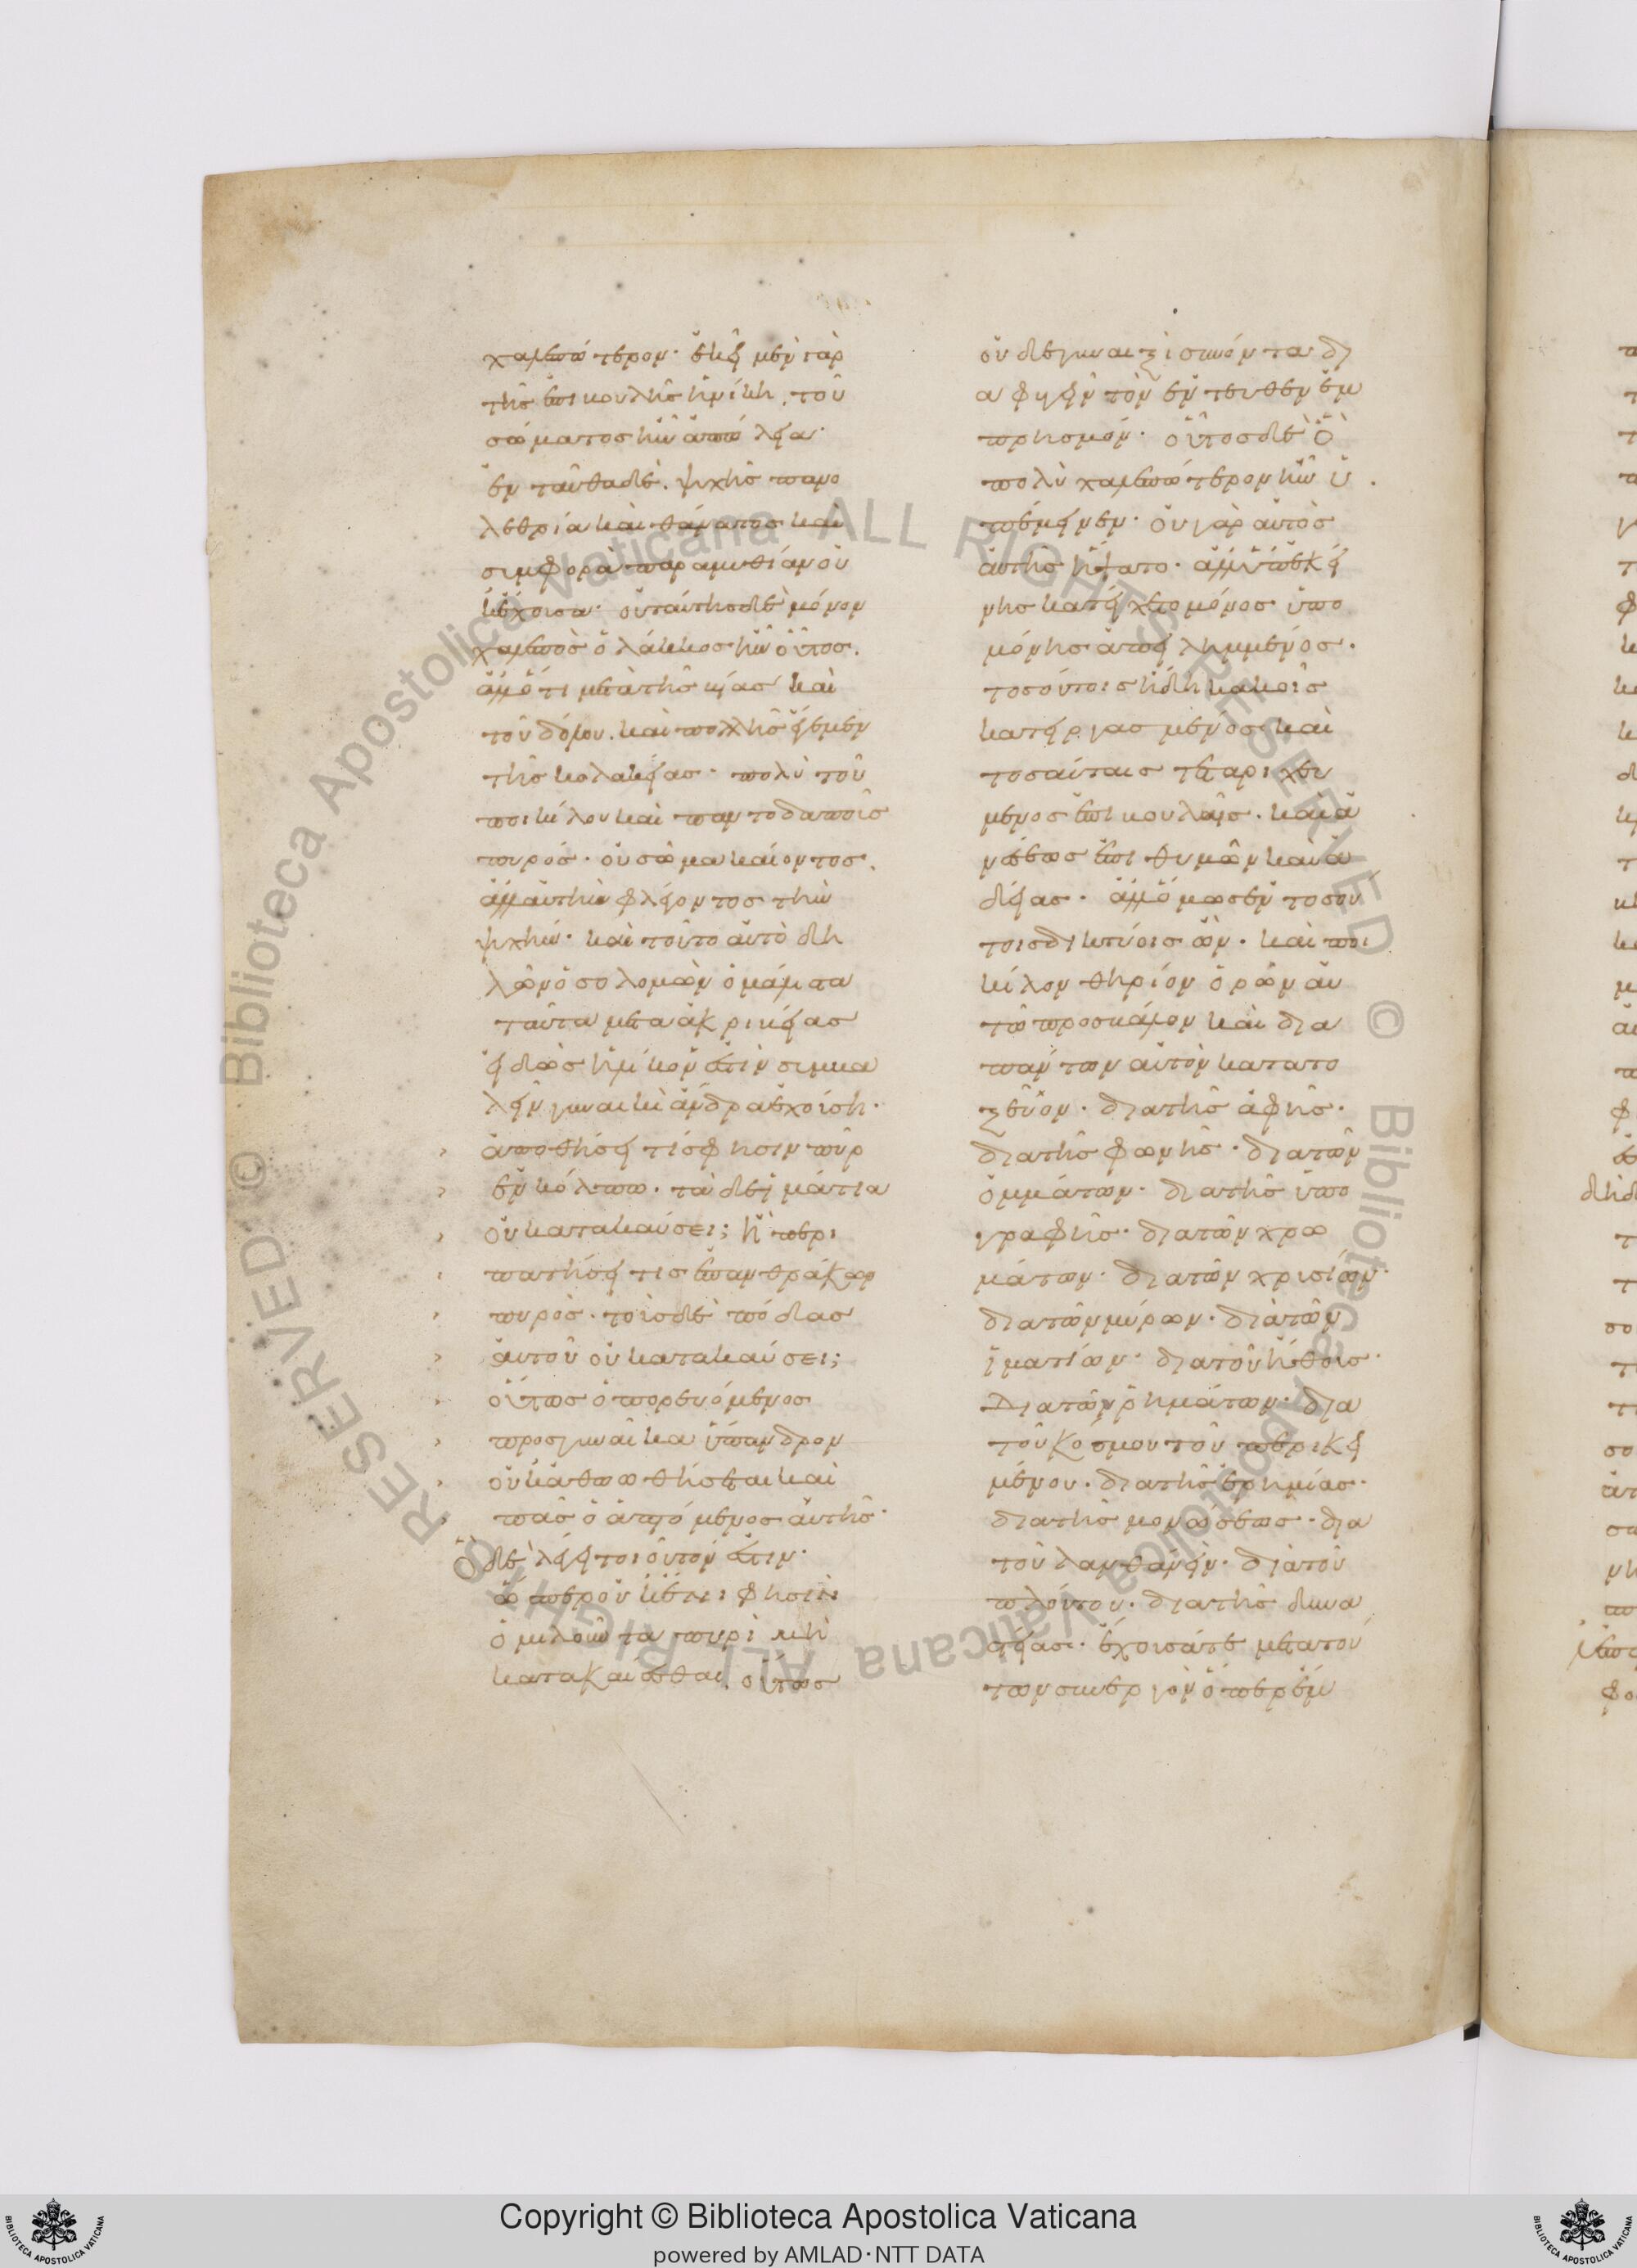 χαλεπώτερον· ἐκεῖ μὲν γὰρ
τῆς ἐπιβουλῆς ἡ νίκη, τοῦ
σώματος ἦν ἀπώλεια·
ἐνταῦθα δὲ, ψυχῆς πανω
λεθρία καὶ θάνατος καὶ
συμφορὰ παραμυθίαν οὐκ
ἔχουσα· οὐ ταύτης δὲ μόνον
χαλεπὸς ὁ λάκκος ἦν οὗτος,
ἀλλ' ὅτι μετὰ τῆς βίας καὶ
τοῦ δόλου, καὶ πολλῆς ἔγεμεν
τῆς κολακείας· πολὺ τοῦ
ποικίλου καὶ παντοδαποῦς
πυρός· οὐ σῶμα καίοντος,
ἀλλ' αὐτὴν φλέγοντος τὴν
ψυχήν· καὶ τοῦτο αὐτὸ δη
λῶν ὁ σολομῶν ὁ μάλιστα
ταῦτα μετὰ ἀκριβείας
εἰδὼς ἡλίκον ἐστὶν συμπλα
κῆναι γυναικὶ ἄνδρα ἐχούσῃ·
ἀποδήσει τίς φησιν πῦρ
ἐν κόλπω· τὰ δὲ ἱμάτια
οὐ κατακαύσει; ἢ περι
πατήσει τις ἐπ' ἀνθράκων
πυρὸς· τοὺς δὲ πόδας
αὐτοῦ οὐ κατακαύσει;
οὕτως ὁ πορευόμενος
πρὸς γυναῖκα ὕπανδρον
οὐκ ἀθωωθήσεται καὶ
πᾶς ὁ ἁπτόμενος αὐτῆς·
Ὃ δὲ λέγει τοιοῦτόν ἐστιν·
ὥσπερ οὐκ ἔστι φησὶν
ὁμιλοῦντα πυρὶ μὴ
κατακαίεσθαι, οὕτως
οὐδὲ γυναιξὶ συνόντα· δι
αφυγεῖν τὸν ἐντεῦθεν ἐμ
πρησμόν· οὗτος δὲ ὃ
πολὺ χαλεπώτερον ἦν ὑ
πέμεινεν· οὐ γὰρ αὐτὸς
αὐτῆς ἥψατο· ἀλλ' ὑπ' ἐκεί
νης κατείχετο μόνος ὑπὸ
μόνης ἀπειλημμένος·
τοσούτοις ἤδη κακοῖς
κατειργασμένος καὶ
τοσαύταις τεταριχευ
μένος ἐπιβουλαῖς· καὶ ἀ
νέσεως ἐπιθυμῶν καὶ ἀ
δείας· ἀλλ' ὅμως ἐν τοσού
τοις δικτύοις ὢν· καὶ ποι
κίλον θηρίον ὁρῶν αὐ
τῶ προσβάλλον καὶ διὰ
πάντων αὐτὸν κατατο
ξεῦον· διὰ τῆς ἀφῆς·
διὰ τῆς φωνῆς· διὰ τῶν
ὀμμάτων· διὰ τῆς ὑπο
γραφῆς· διὰ τῶν χρω
μάτων· διὰ τῶν χρυσίων·
διὰ τῶν μύρων· διὰ τῶν
ἱματίων· διὰ τοῦ ἤθους·
διὰ τῶν ῥημάτων· διὰ
τοῦ κόσμου τοῦ περικει
μένου· διὰ τῆς ἐρημίας·
διὰ τῆς μονώσεως· διὰ
τοῦ λανθάνειν· διὰ τοῦ
πλούτου· διὰ τῆς δυνα
στείας· ἔχουσά τε μετὰ τού
των συνεργὸν ὅπερ ἔμ